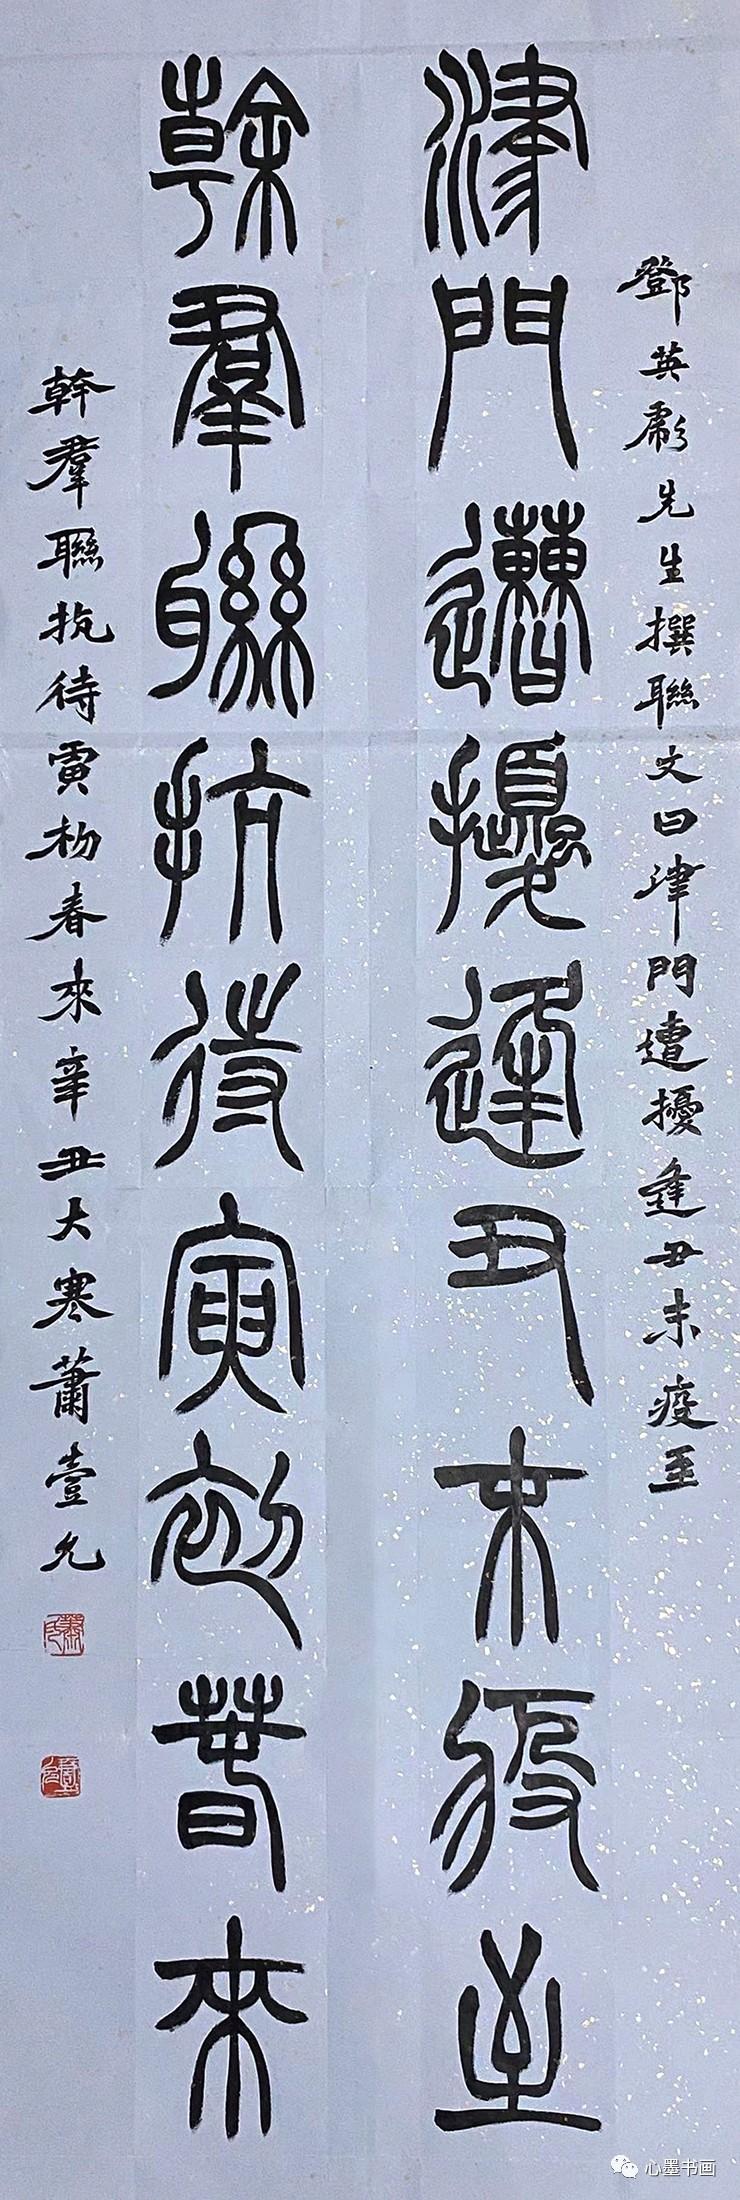 鄧英彪先生撰聯文曰津門遭擾逢丑末疫至
津門遭擾逢丑末疫至
幹羣聯抗待寅初春來
幹羣聯抗待寅初春來辛丑大寒蕭壹允
心墨书画